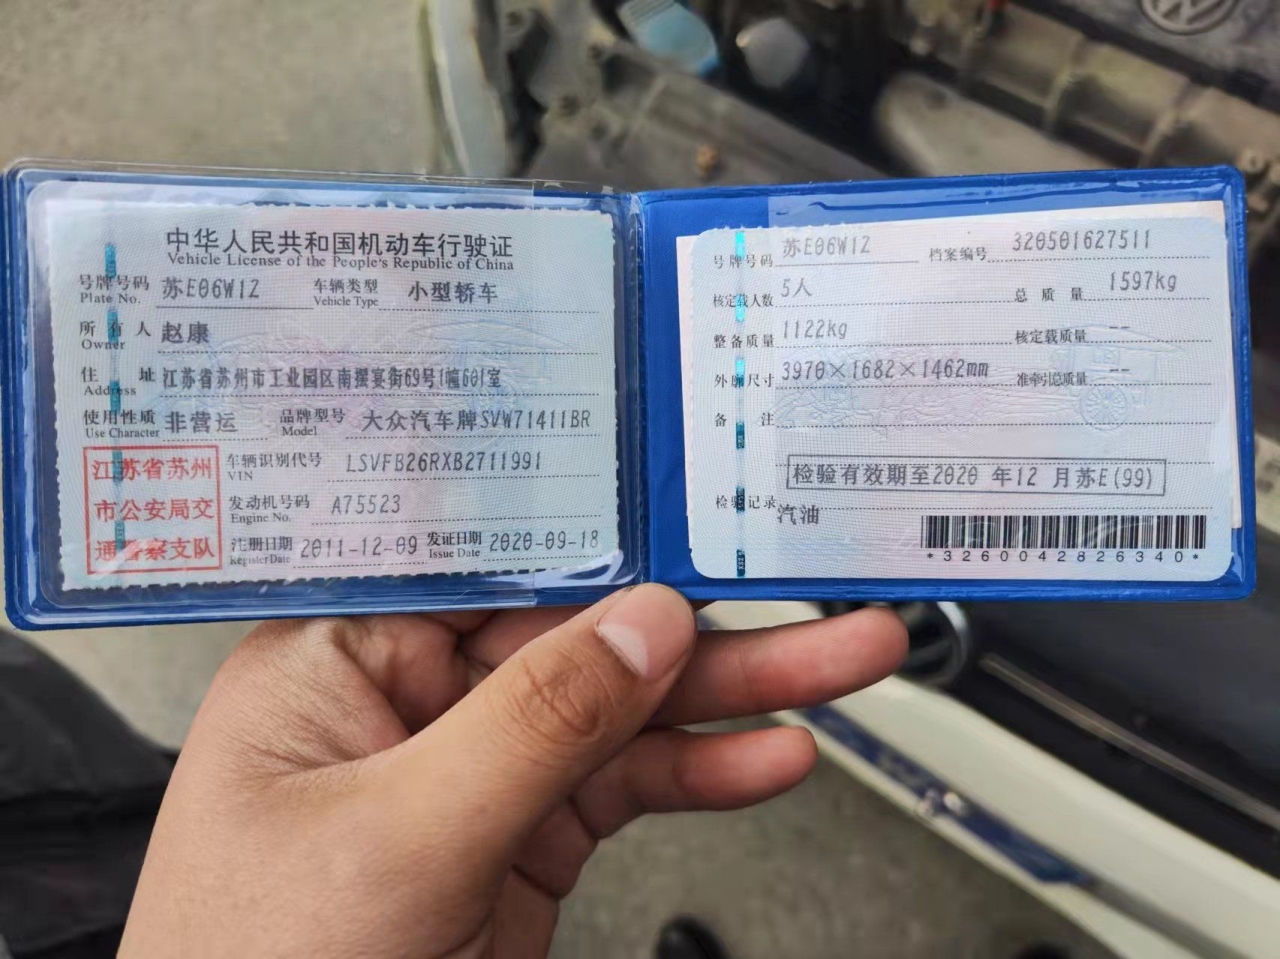 中华人民共和国机动车行驶证
Vehicle License of the People's Republic of China
号牌号码 苏E06W1Z 车辆类型 小型轿车
Plate No. Vehicle Type
所有人 赵康
Owner
住址 江苏省苏州市工业园区南摆宴街69号1幢601室
Address
使用性质 非营运 品牌型号 大众汽车牌SVW71411BR
Use Character Model
江苏省苏州
市公安局交
通警察支队
车辆识别代号 LSVFB26RXB2711991
VIN
发动机号码 A75523
Engine No.
注册日期 2011-12-09 发证日期 2020-09-18
Register Date Issue Date
号牌号码 苏E06W1Z 档案编号 320501627511
核定载人数 5人 总质量 1597kg
整备质量 1122kg 核定载质量 --
外廓尺寸 3970×1682×1462mm 准牵引总质量 --
备注
检验有效期至2020 年12 月苏E(99)
检验记录
汽油
*3260042826340*